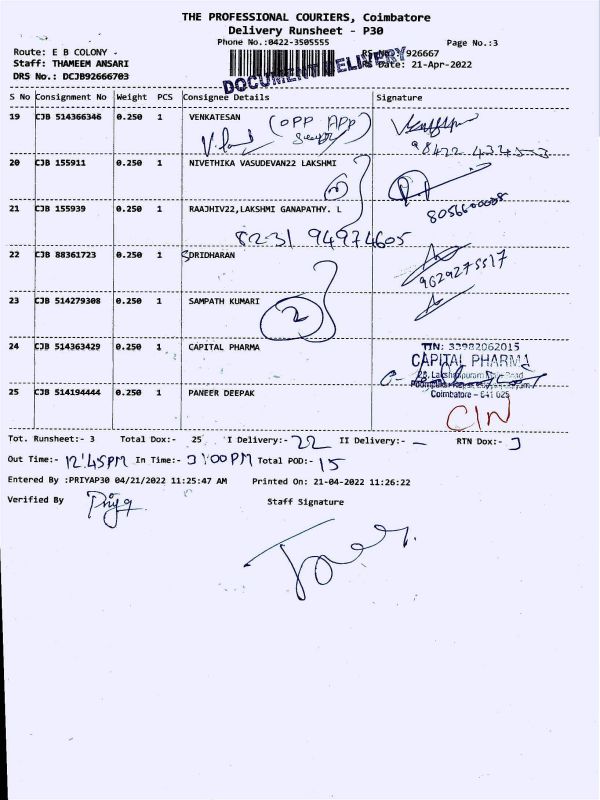 THE PROFESSIONAL COURIERS, Coimbatore
Delivery Runsheet - P30
Phone No.:0422-3505555 Page No.:3
Route: E B COLONY - 926667
Staff: THAMEEM ANSARI Date: 21-Apr-2022
DRS No.: DCJB92666703
DOCUMENT DELIVERY
S No Consignment No Weight PCS Consignee Details Signature
19 CJB 514366346 0.250 1 VENKATESAN (OPP APP)
20 CJB 155911 0.250 1 NIVETHIKA VASUDEVAN22 LAKSHMI
21 CJB 155939 0.250 1 RAAJHIV22,LAKSHMI GANAPATHY. L
8231 94974605
22 CJB 88361723 0.250 1 SDRIDHARAN
9629275517
23 CJB 514279308 0.250 1 SAMPATH KUMARI
2
24 CJB 514363429 0.250 1 CAPITAL PHARMA
TIN: 33982062015
CAPITAL PHARMA
Coimbatore - 641 025
25 CJB 514194444 0.250 1 PANEER DEEPAK
CIN
Tot. Runsheet:- 3 Total Dox:- 25 I Delivery:- 22 II Delivery:- - RTN Dox:- 3
Out Time:- 12:45PM In Time:- 3:00PM Total POD:- 15
Entered By :PRIYAP30 04/21/2022 11:25:47 AM Printed On: 21-04-2022 11:26:22
Verified By Staff Signature